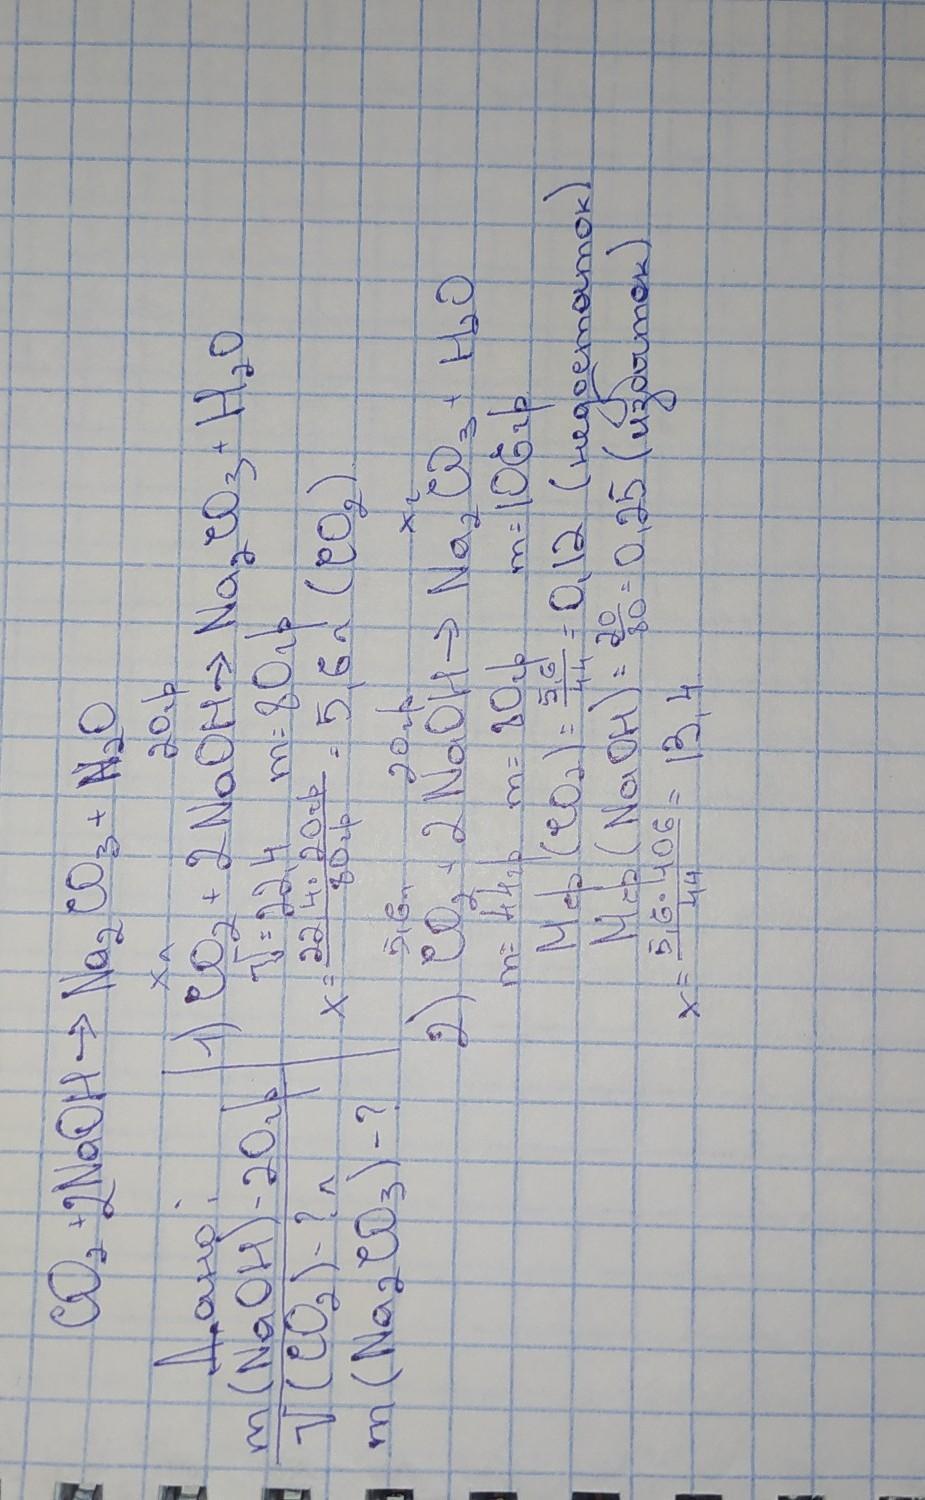 CO₂ + 2NaOH → Na₂CO₃ + H₂O
Дано:
m(NaOH) - 20гр
V(CO₂) - ? л
m(Na₂CO₃) - ?
хл 20гр
1) CO₂ + 2NaOH → Na₂CO₃ + H₂O
V = 22,4 m = 80гр
x = 22,4 · 20гр / 80гр = 5,6л (CO₂)
5,6л 20гр хг
2) CO₂ + 2NaOH → Na₂CO₃ + H₂O
m = 44гр m = 80гр m = 106гр
Мср (CO₂) = 5,6 / 44 = 0,12 (недостаток)
Мср (NaOH) = 20 / 80 = 0,25 (избыток)
x = 5,6 · 106 / 44 = 13,4